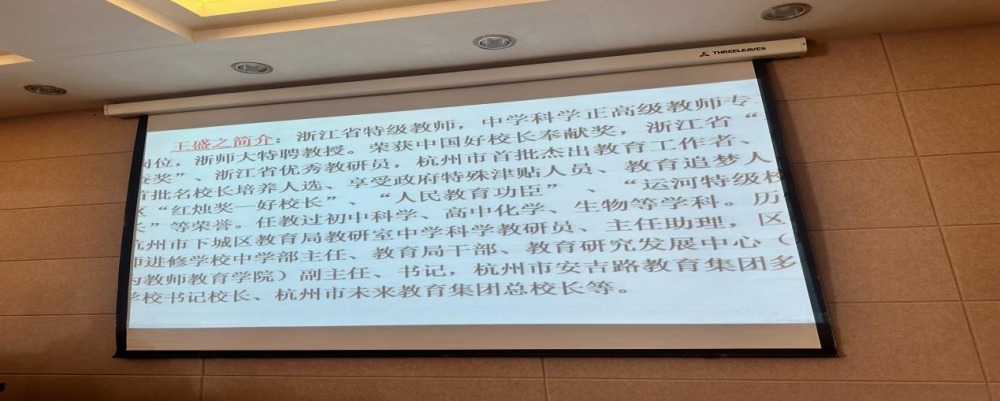 THREELEAVES
王盛之简介：浙江省特级教师，中学科学正高级教师专
岗位，浙师大特聘教授。荣获中国好校长奉献奖，浙江省“
奖”、浙江省优秀教研员，杭州市首批杰出教育工作者、
首批名校长培养人选、享受政府特殊津贴人员、教育追梦人
区“红烛奖—好校长”、“人民教育功臣”、“运河特级校
长”等荣誉。任教过初中科学、高中化学、生物等学科。历
杭州市下城区教育局教研室中学科学教研员、主任助理，区
师进修学校中学部主任、教育局干部、教育研究发展中心（
为教师教育学院）副主任、书记，杭州市安吉路教育集团多
学校书记校长、杭州市未来教育集团总校长等。